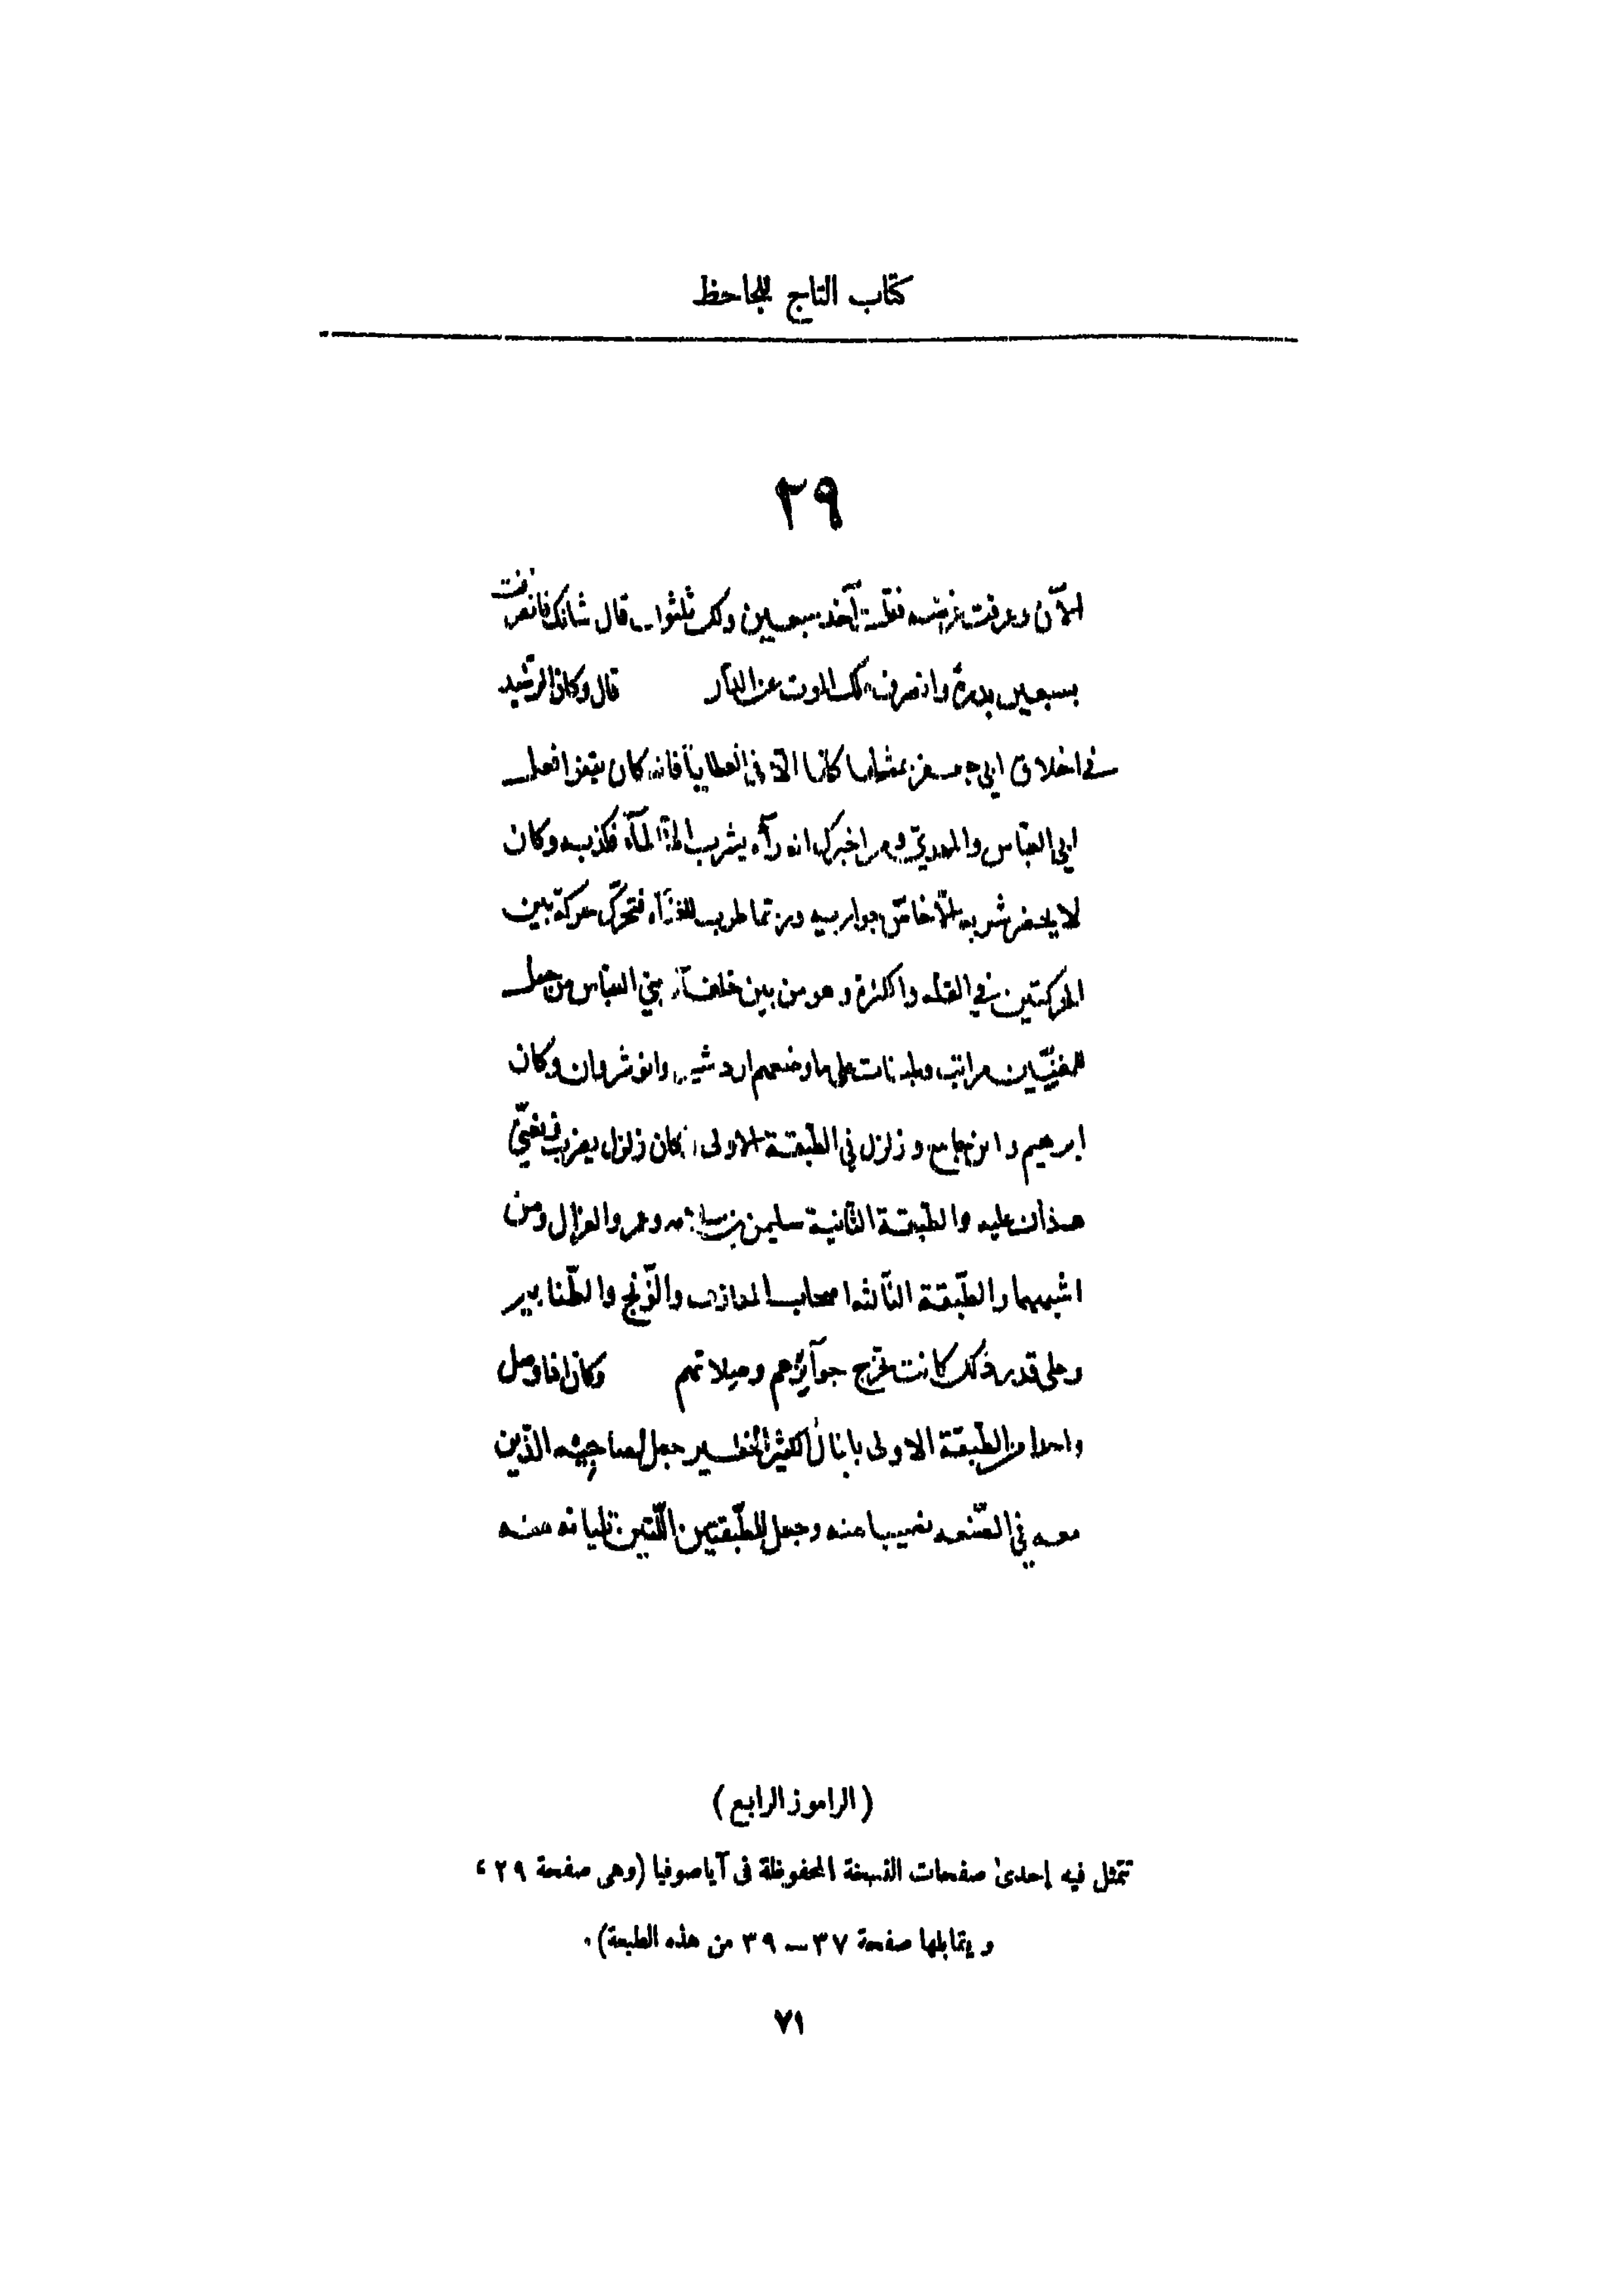 كتاب التاج للجاحظ
٢٩
الآن وعرفت غرضه فقلت آخذ سبعين ولك ثلثون قال شانك فانصرفت
بسبعين بدرة وانصرف ملك الموت عن الدار قال وكان الرشيد
في اخلاق ابي جعفر يمتثلها كلها الا في العطايا فانه كان يقفوا فعل
ابي العباس والمهدي ومن اخبرك انه رآه يشرب الا الماء فكذبه وكان
لا يحضر شربه الا خاص جواريه وربما طرب للغناء فتحرك حركة بين
الحركتين في القلة والكثرة وهو من بين خلفاء بني العباس من جعل
للمغنيين مراتب وطبقات على ما وضعهم اردشير وانوشروان وكان
ابرهيم وابن جامع وزلزل في الطبقة الاولى وكان زلزل يضرب ويغني
هذان عليه والطبقة الثانية سليمن بن سلام وعمرو الغزال ومن
اشبههما والطبقة الثالثة اصحاب المعازف والونج والطنابير
وعلى قدر ذلك كانت تخرج جوآيزهم وصلاتهم وكان اذا وصل
واحدا من الطبقة الاولى بالمال الكثير الخطير جعل لصاحبيه الذين
معه في الصنعه نصيبا منه وجعل للطبقتين اللتين تليانه منه
(الراموز الرابع)
تتمثل فيه إحدى صفحات النسخة المحفوظة فى آيا صوفيا (وهى صفحة ٢٩،
ويقابلها صفحة ٣٧ – ٣٩ من هذه الطبعة).
٧١